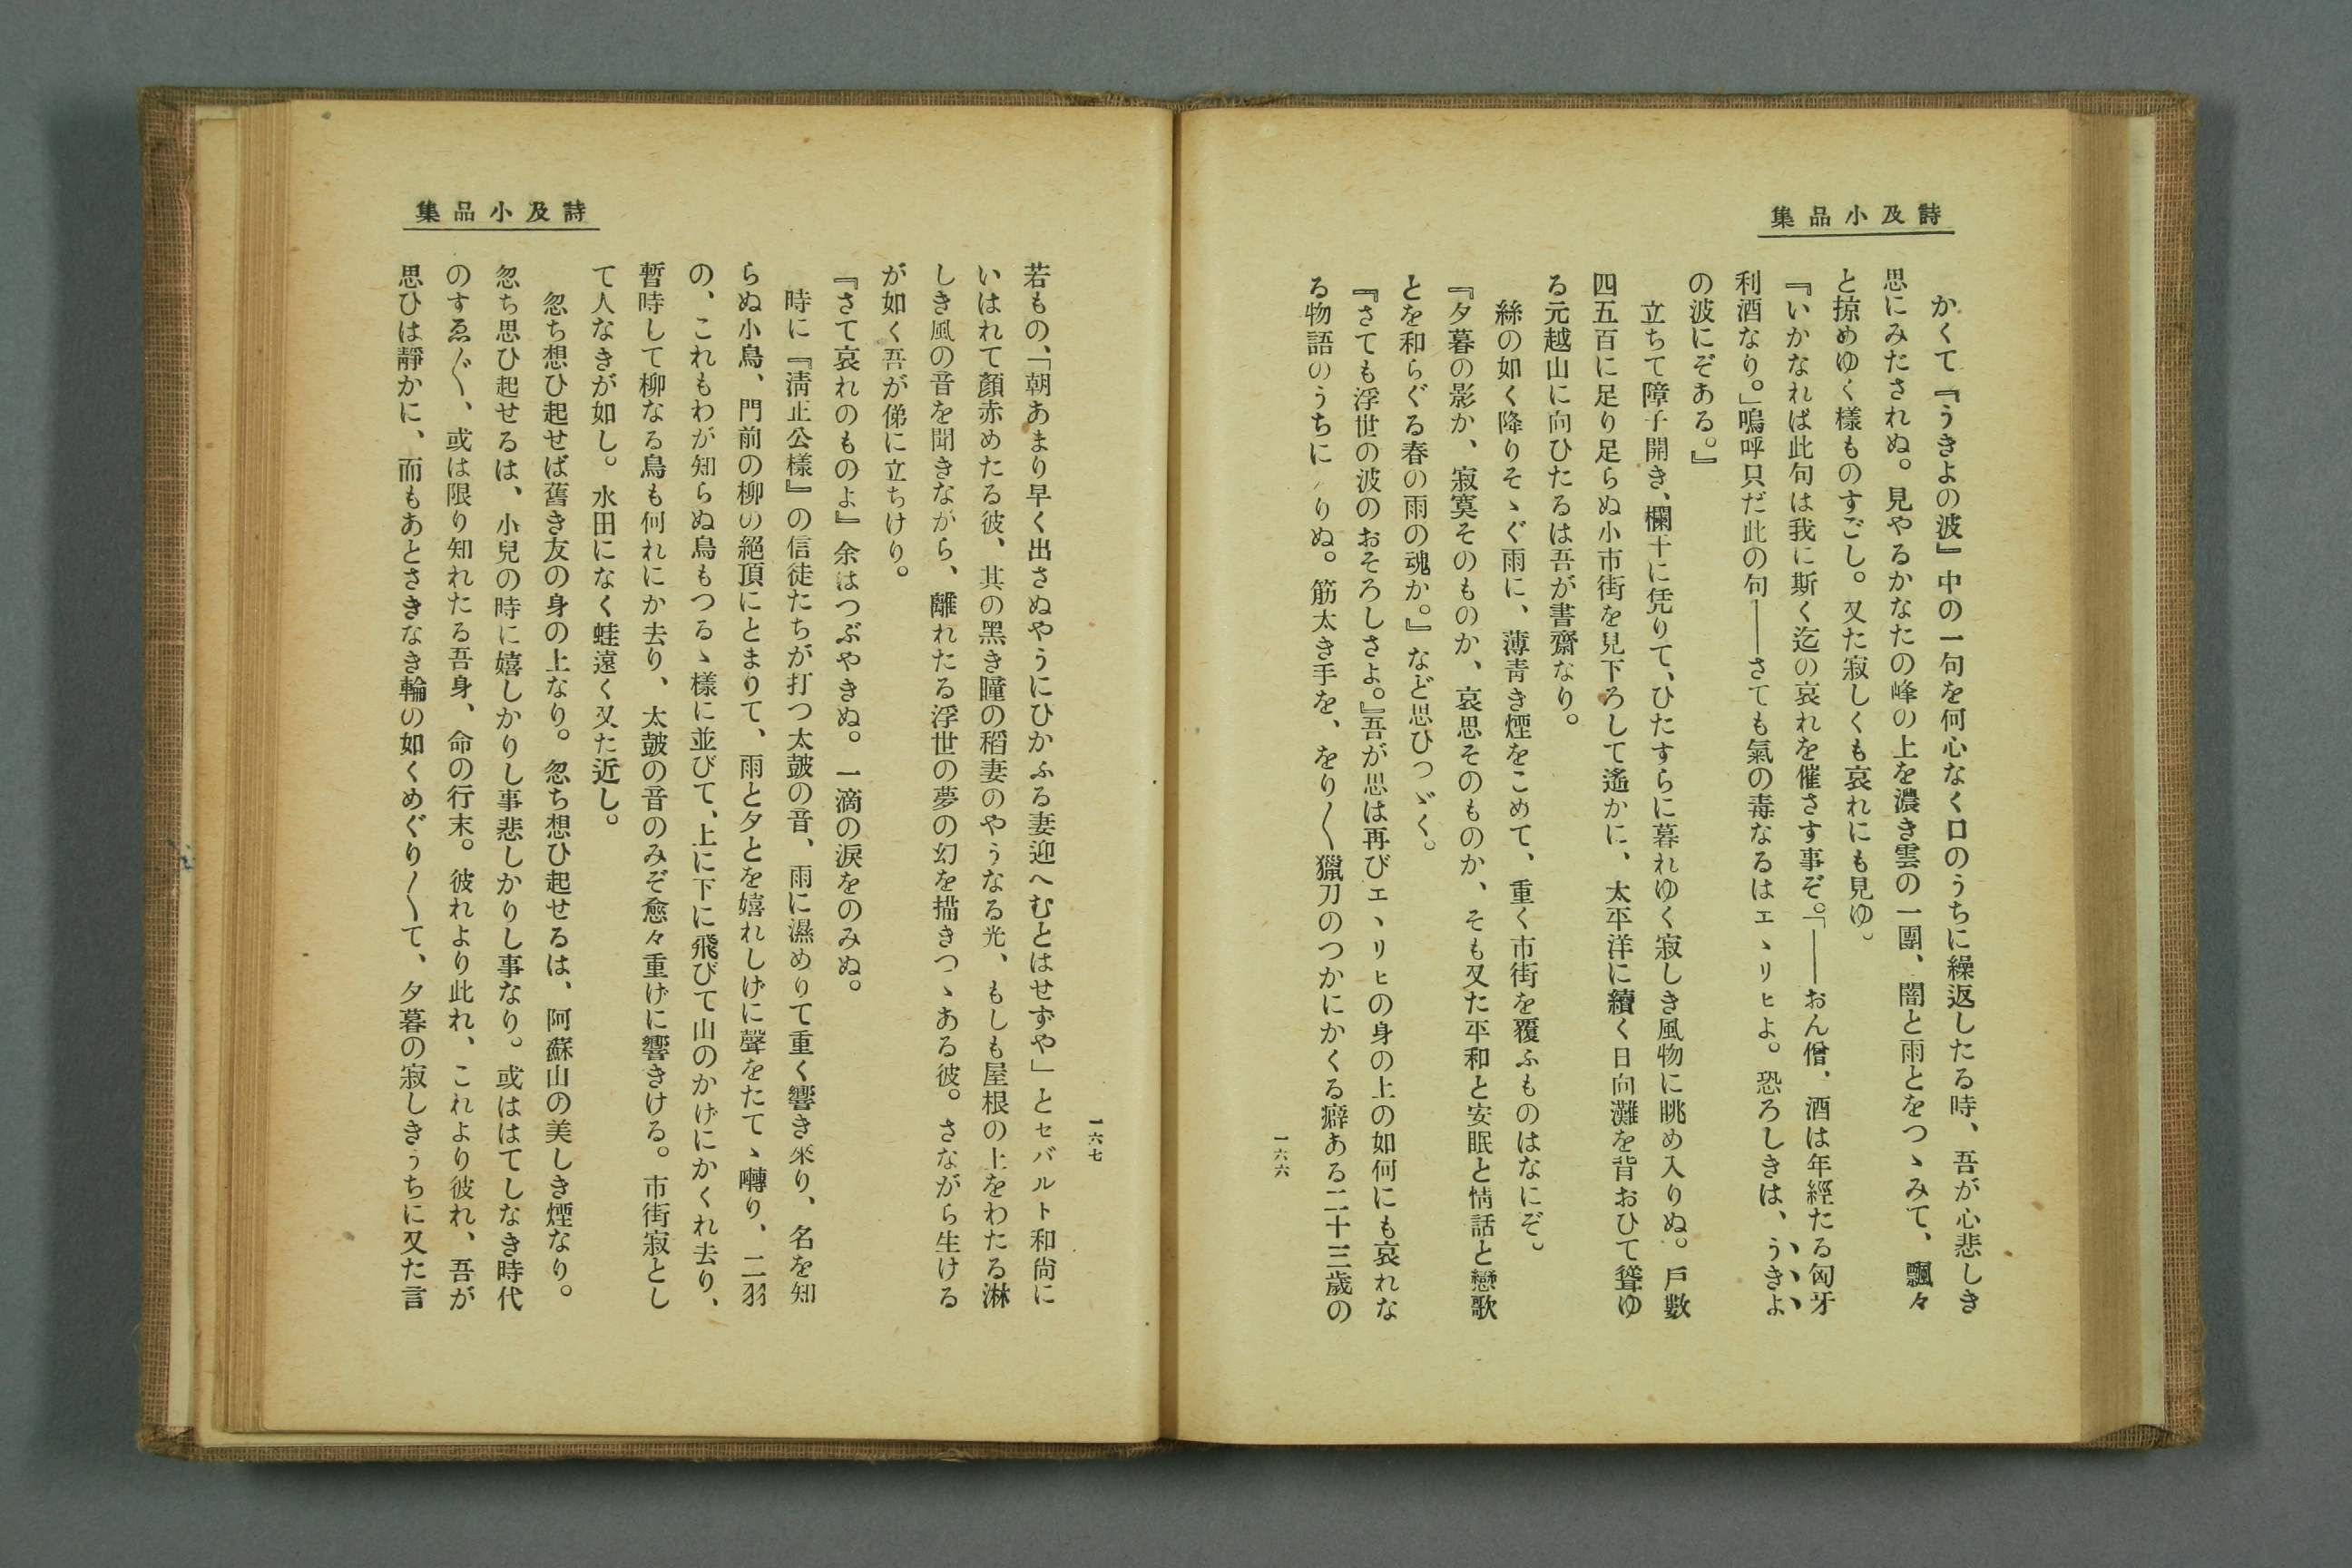 詩及小品集
かくて『うきよの波』中の一句を何心なく口のうちに繰返したる時、吾が心悲しき
思にみたされぬ。見やるかなたの峰の上を濃き雲の一團、闇と雨とをつゝみて、飄々
と掠めゆく樣ものすごし。又た寂しくも哀れにも見ゆ。
『いかなれば此句は我に斯く迄の哀れを催さす事ぞ。「――おん僧、酒は年經たる匈牙
利酒なり。」嗚呼只だ此の句――さても氣の毒なるはエヽリヒよ。恐ろしきは、うきよ
の波にぞある。』
立ちて障子開き、欄干に凭りて、ひたすらに暮れゆく寂しき風物に眺め入りぬ。戸數
四五百に足り足らぬ小市街を見下ろして遙かに、太平洋に續く日向灘を背おひて聳ゆ
る元越山に向ひたるは吾が書齋なり。
絲の如く降りそゝぐ雨に、薄靑き煙をこめて、重く市街を覆ふものはなにぞ。
『夕暮の影か、寂寞そのものか、哀思そのものか、そも又た平和と安眠と情話と戀歌
とを和らぐる春の雨の魂か。』など思ひつゞく。
『さても浮世の波のおそろしさよ。』吾が思は再びエヽリヒの身の上の如何にも哀れな
る物語のうちに りぬ。筋太き手を、をり〱獵刀のつかにかくる癖ある二十三歳の
一六六
詩及小品集
若もの、「朝あまり早く出さぬやうにひかふる妻迎へむとはせずや」とセバルト和尙に
いはれて顏赤めたる彼、其の黑き瞳の稻妻のやうなる光、もしも屋根の上をわたる淋
しき風の音を聞きながら、離れたる浮世の夢の幻を描きつゝある彼。さながら生ける
が如く吾が俤に立ちけり。
『さて哀れのものよ』余はつぶやきぬ。一滴の淚をのみぬ。
時に『淸正公樣』の信徒たちが打つ太皷の音、雨に濕めりて重く響き來り、名を知
らぬ小鳥、門前の柳の絕頂にとまりて、雨と夕とを嬉れしげに聲をたてゝ囀り、二羽
の、これもわが知らぬ鳥もつるゝ樣に並びて、上に下に飛びて山のかげにかくれ去り、
暫時して柳なる鳥も何れにか去り、太皷の音のみぞ愈々重げに響きける。市街寂とし
て人なきが如し。水田になく蛙遠く又た近し。
忽ち想ひ起せば舊き友の身の上なり。忽ち想ひ起せるは、阿蘇山の美しき煙なり。
忽ち思ひ起せるは、小兒の時に嬉しかりし事悲しかりし事なり。或ははてしなき時代
のすゑ〲、或は限り知れたる吾身、命の行末。彼れより此れ、これより彼れ、吾が
思ひは靜かに、而もあとさきなき輪の如くめぐり〱て、夕暮の寂しきうちに又た言
一六七